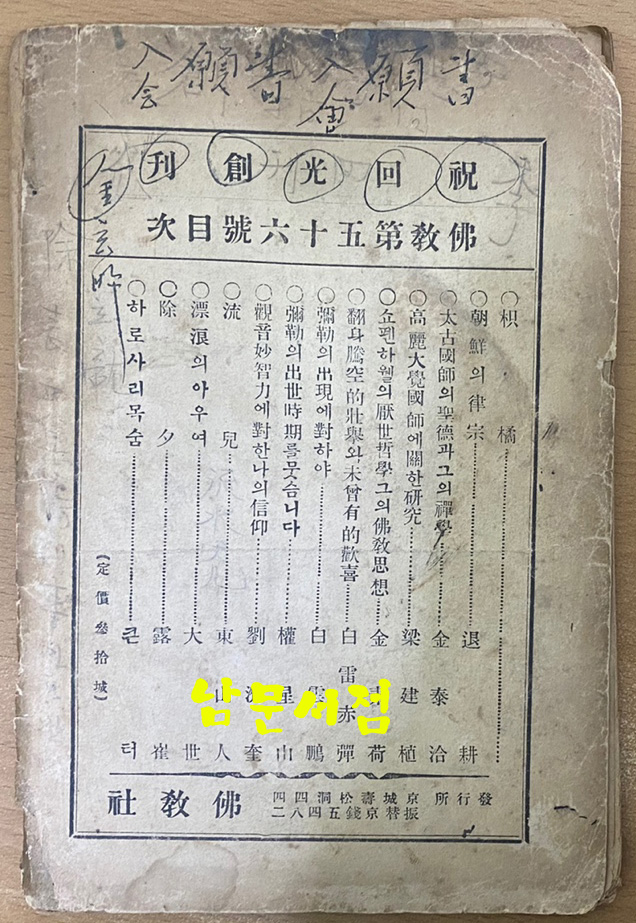 入会 願書 入會 願書
祝回光創刊
佛教第五十六號目次
○枳 橘
○朝鮮의律宗 退耕
○太古國師의聖德과그의禪學 金泰洽
○高麗大覺國師에關한硏究 梁建植
○쇼펜하월의厭世哲學그의佛教思想 金 荷
○翻身騰空的壯擧와未曾有的歡喜 白雷赤彈
○彌勒의出現에對하야 白雲鵬
○彌勒의出世時期를뭇슴니다 權星山
○觀音妙智力에對한나의信仰 劉 奎
○流兒 東山人
○漂浪의아우여 大世
○除夕 露崔
○하로사리목숨 큰터
(定價參拾城)
發行所 京城壽松洞四四
振替京城五四八二
佛教社
남문서점